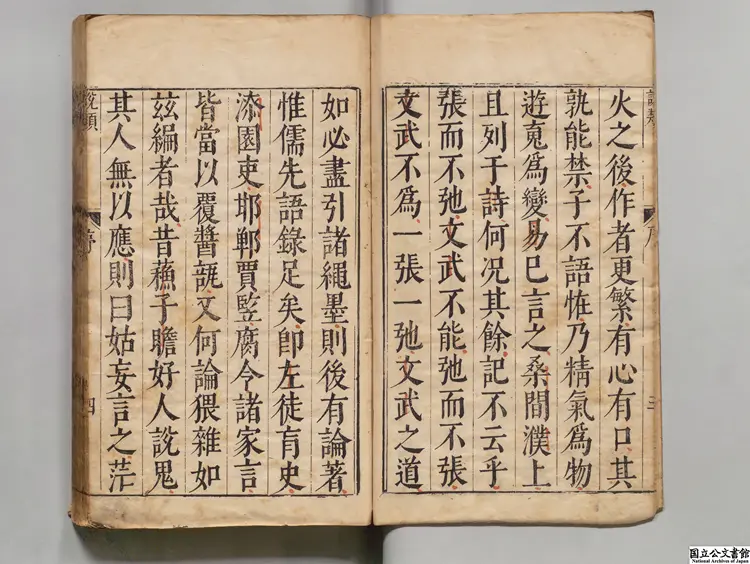 說類
火之後作者更繁有心有口其
孰能禁子不語恠乃精氣為物
遊䰟為變易巳言之桑間濮上
且列于詩何况其餘記不云乎
張而不弛文武不能弛而不張
文武不為一張一弛文武之道
如必盡引諸繩墨則後有論著
惟儒先語錄足矣卽左徒肓史
漆園吏邯鄲賈監腐令諸家言
皆當以覆醬瓿又何論猥雜如
茲編者哉昔蘓子瞻好人說鬼
其人無以應則曰姑妄言之茫
說類
序
四
国立公文書館
National Archives of Japan